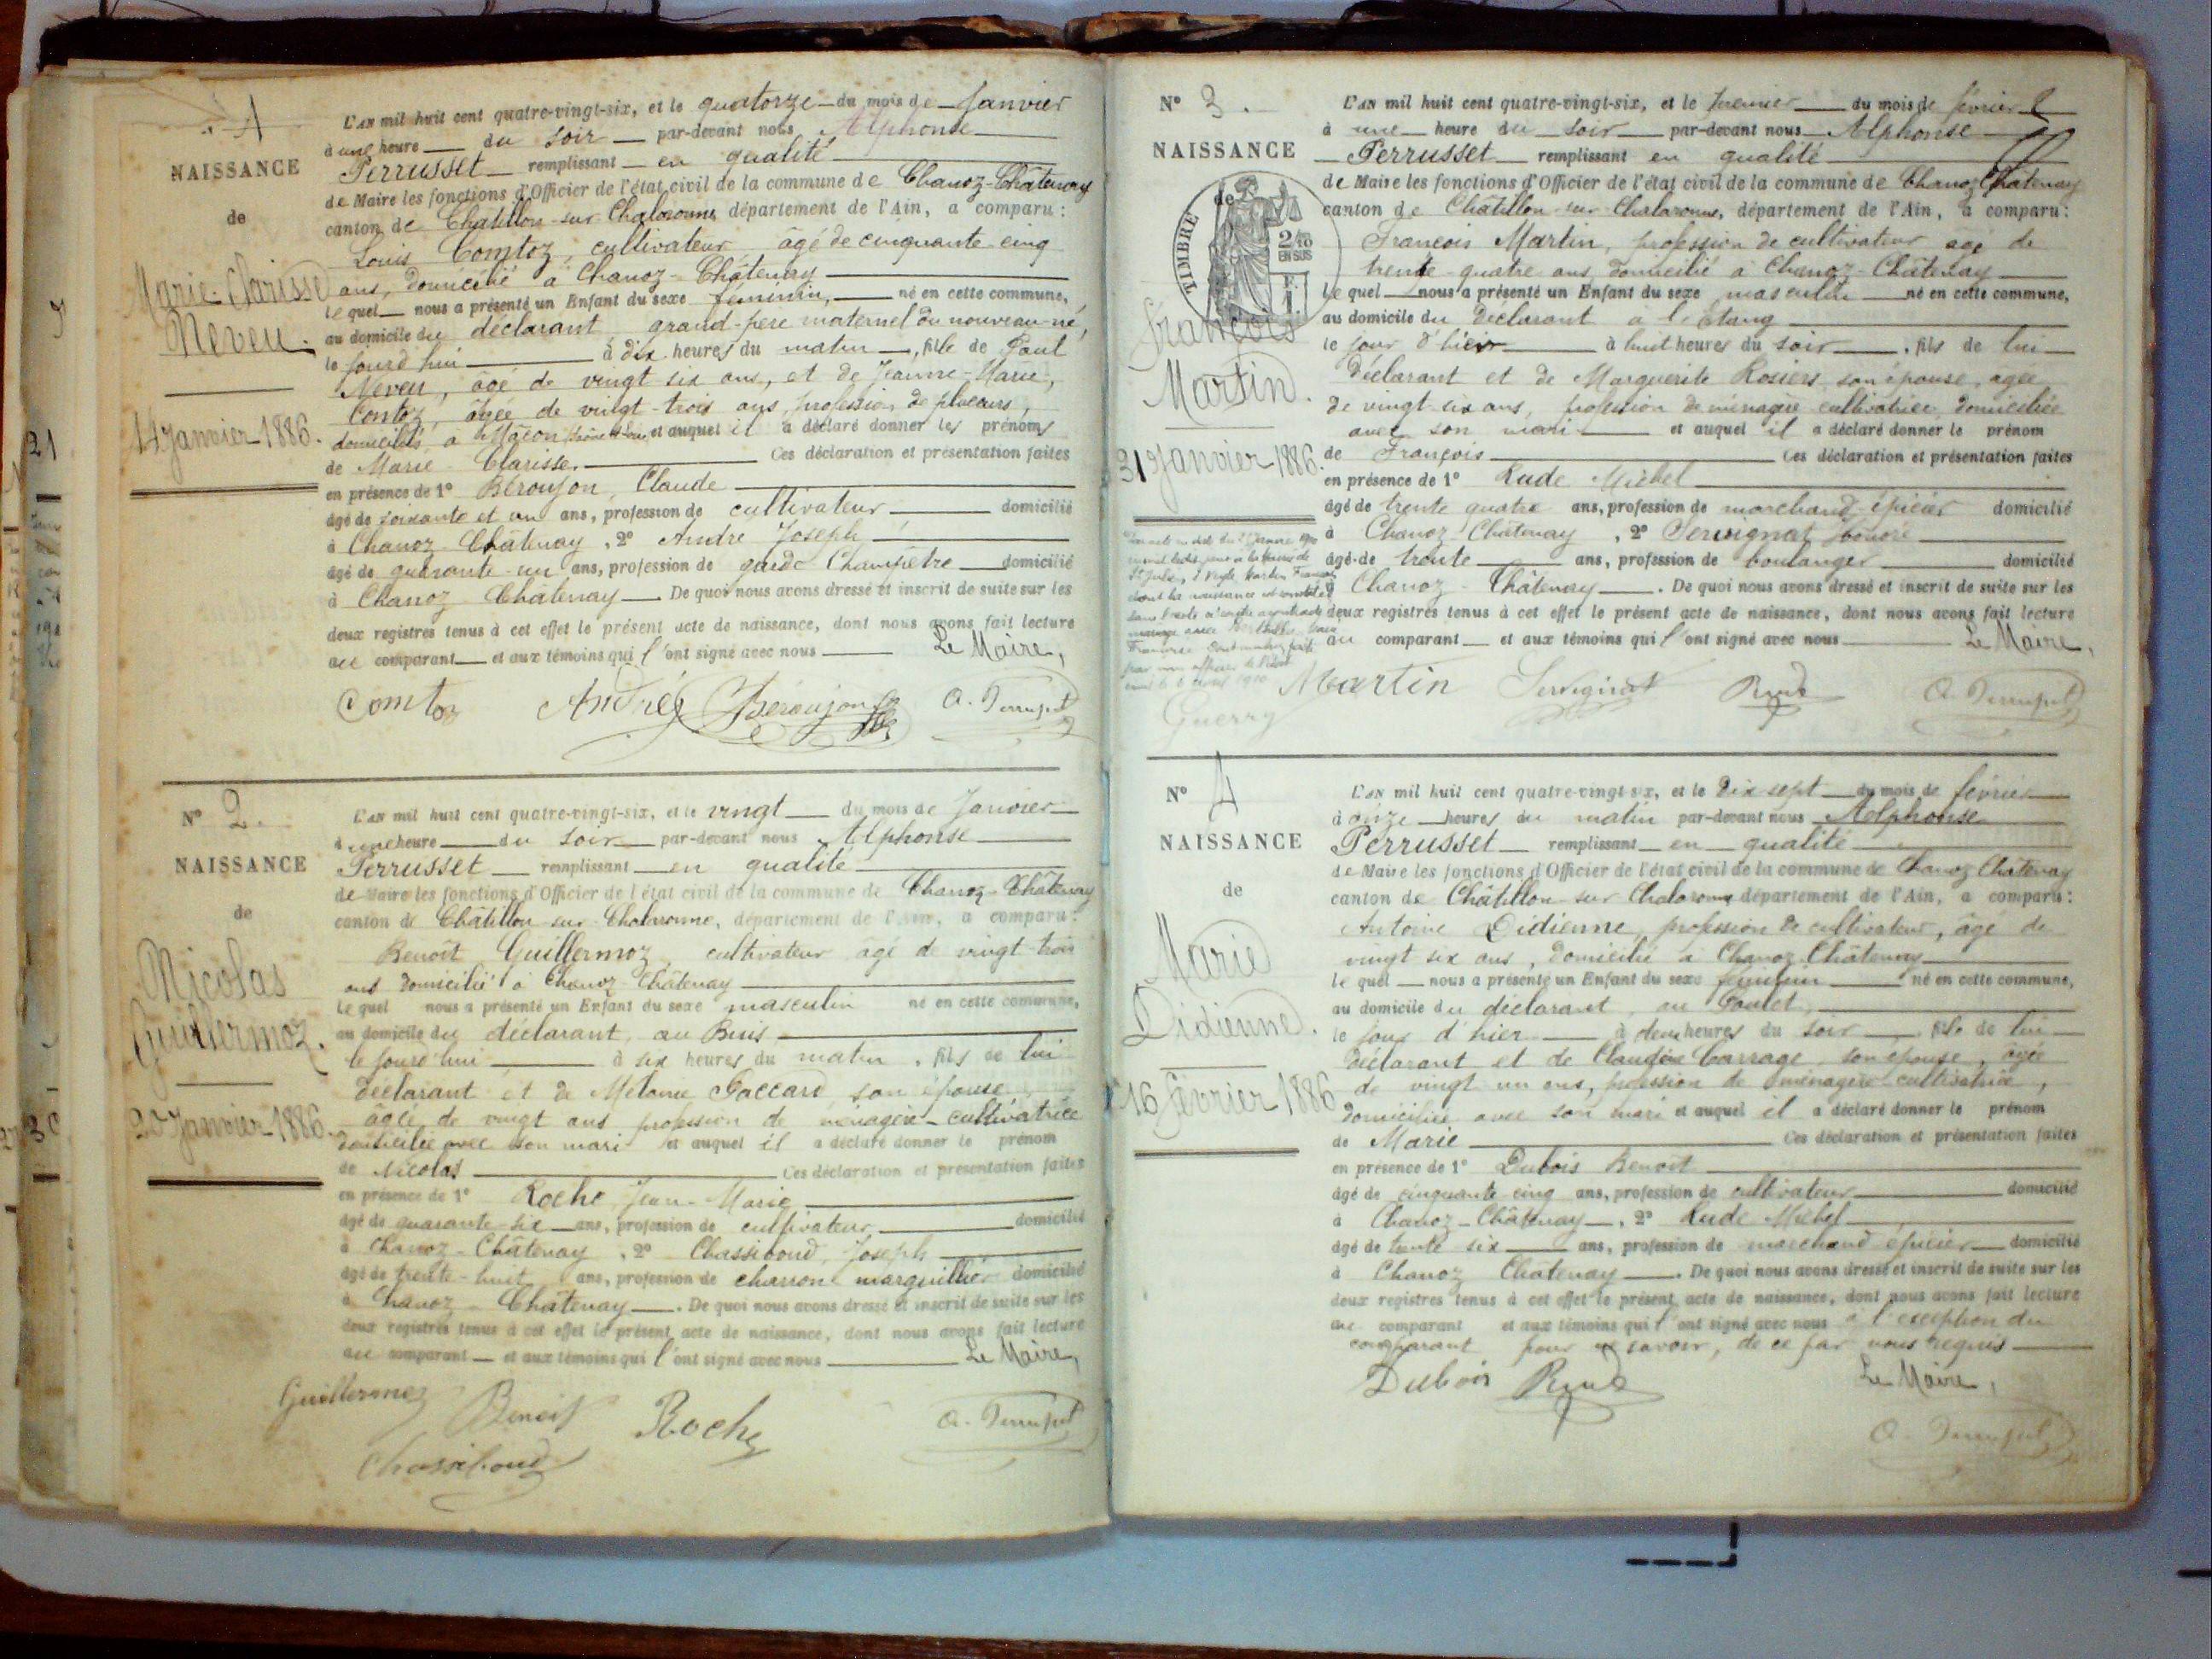 1
NAISSANCE
de
Marie-Clarisse
Neveu.
14 Janvier 1886.
L'AN mil huit cent quatre-vingt-six, et le quatorze du mois de Janvier
à une heure du soir par-devant nous Alphonse
Perrusset remplissant en qualité
de Maire les fonctions d'Officier de l'état civil de la commune de Chanoz-Châtenay
canton de Chatillon-sur-Chalaronne, département de l'Ain, a comparu :
Louis Comtoz, cultivateur, âgé de cinquante-cinq
ans, domicilié à Chanoz-Châtenay
lequel nous a présenté un Enfant du sexe féminin, né en cette commune,
au domicile du déclarant grand-père maternel du nouveau-né,
le jourd'hui à dix heures du matin, fille de Paul
Neveu, âgé de vingt six ans, et de Jeanne-Marie,
Contoz, âgée de vingt-trois ans, profession de placeurs,
domiciliés à Mâcon et auquel il a déclaré donner les prénoms
de Marie-Clarisse. Ces déclaration et présentation faites
en présence de 1° Béroujon, Claude
âgé de soixante et un ans, profession de cultivateur domicilié
à Chanoz-Châtenay, 2° André Joseph
âgé de quarante-un ans, profession de garde Champêtre domicilié
à Chanoz Chatenay. De quoi nous avons dressé et inscrit de suite sur les
deux registres tenus à cet effet le présent acte de naissance, dont nous avons fait lecture
au comparant et aux témoins qui l'ont signé avec nous Le Maire,
Comtoz André Béroujon A. Perrusset
N° 2.
NAISSANCE
de
Nicolas
Guillermoz.
20 Janvier 1886.
L'AN mil huit cent quatre-vingt-six, et le vingt du mois de Janvier
à une heure du soir par-devant nous Alphonse
Perrusset remplissant en qualité
de Maire les fonctions d'Officier de l'état civil de la commune de Chanoz-Châtenay
canton de Châtillon-sur-Chalaronne, département de l'Ain, a comparu :
Benoît Guillermoz, cultivateur âgé de vingt-trois
ans domicilié à Chanoz-Châtenay
lequel nous a présenté un Enfant du sexe masculin né en cette commune,
au domicile du déclarant, au Buis
le jourd'hui à six heures du matin, fils de lui
déclarant et de Mélanie Gaccard son épouse
âgée de vingt ans profession de ménagère-cultivatrice
domiciliée avec son mari et auquel il a déclaré donner le prénom
de Nicolas Ces déclaration et présentation faites
en présence de 1° Roche Jean-Marie
âgé de quarante-six ans, profession de cultivateur domicilié
à Chanoz-Châtenay, 2° Chassiboud, Joseph
âgé de trente-huit ans, profession de charron marguillier domicilié
à Chanoz-Châtenay. De quoi nous avons dressé et inscrit de suite sur les
deux registres tenus à cet effet le présent acte de naissance, dont nous avons fait lecture
au comparant et aux témoins qui l'ont signé avec nous Le Maire,
Guillermoz Benoit Roche A. Perrusset
Chassiboud
N° 3.
NAISSANCE
de
TIMBRE
EN SUS
François
Martin.
31 Janvier 1886.
Guerry
L'AN mil huit cent quatre-vingt-six, et le premier du mois de février
à une heure du soir par-devant nous Alphonse
Perrusset remplissant en qualité
de Maire les fonctions d'Officier de l'état civil de la commune de Chanoz Châtenay
canton de Châtillon-sur-Chalaronne, département de l'Ain, a comparu :
François Martin, profession de cultivateur âgé de
trente-quatre ans, domicilié à Chanoz-Châtenay
lequel nous a présenté un Enfant du sexe masculin né en cette commune,
au domicile du déclarant à l'étang
le jour d'hier à huit heures du soir, fils de lui
déclarant et de Marguerite Rosiers son épouse, âgée
de vingt-six ans, profession de ménagère cultivatrice, domiciliée
avec son mari et auquel il a déclaré donner le prénom
de François Ces déclaration et présentation faites
en présence de 1° Rude Michel
âgé de trente quatre ans, profession de marchand-épicier domicilié
à Chanoz Châtenay, 2° Servignat honoré
âgé de trente ans, profession de boulanger domicilié
à Chanoz-Châtenay. De quoi nous avons dressé et inscrit de suite sur les
deux registres tenus à cet effet le présent acte de naissance, dont nous avons fait lecture
au comparant et aux témoins qui l'ont signé avec nous Le Maire,
Martin Servignat Rude A. Perrusset
N° 4
NAISSANCE
de
Marie
Didienne.
16 février 1886
L'AN mil huit cent quatre-vingt-six, et le dix sept du mois de février
à onze heures du matin par-devant nous Alphonse
Perrusset remplissant en qualité
de Maire les fonctions d'Officier de l'état civil de la commune de Chanoz Châtenay
canton de Châtillon-sur-Chalaronne département de l'Ain, a comparu :
Antoine Didienne, profession de cultivateur, âgé de
vingt six ans, domicilié à Chanoz Châtenay
lequel nous a présenté un Enfant du sexe féminin né en cette commune,
au domicile du déclarant, au
le jour d'hier à deux heures du soir, fille de lui
déclarant et de Claudine Carrage, son épouse, âgée
de vingt un ans, profession de ménagère-cultivatrice,
domiciliée avec son mari et auquel il a déclaré donner le prénom
de Marie Ces déclaration et présentation faites
en présence de 1° Dubois Benoit
âgé de cinquante cinq ans, profession de cultivateur domicilié
à Chanoz-Châtenay, 2° Rude Michel
âgé de trente six ans, profession de marchand épicier domicilié
à Chanoz Châtenay. De quoi nous avons dressé et inscrit de suite sur les
deux registres tenus à cet effet le présent acte de naissance, dont nous avons fait lecture
au comparant et aux témoins qui l'ont signé avec nous à l'exception du
comparant pour ne savoir, de ce par nous requis
Dubois Rude Le Maire,
A. Perrusset